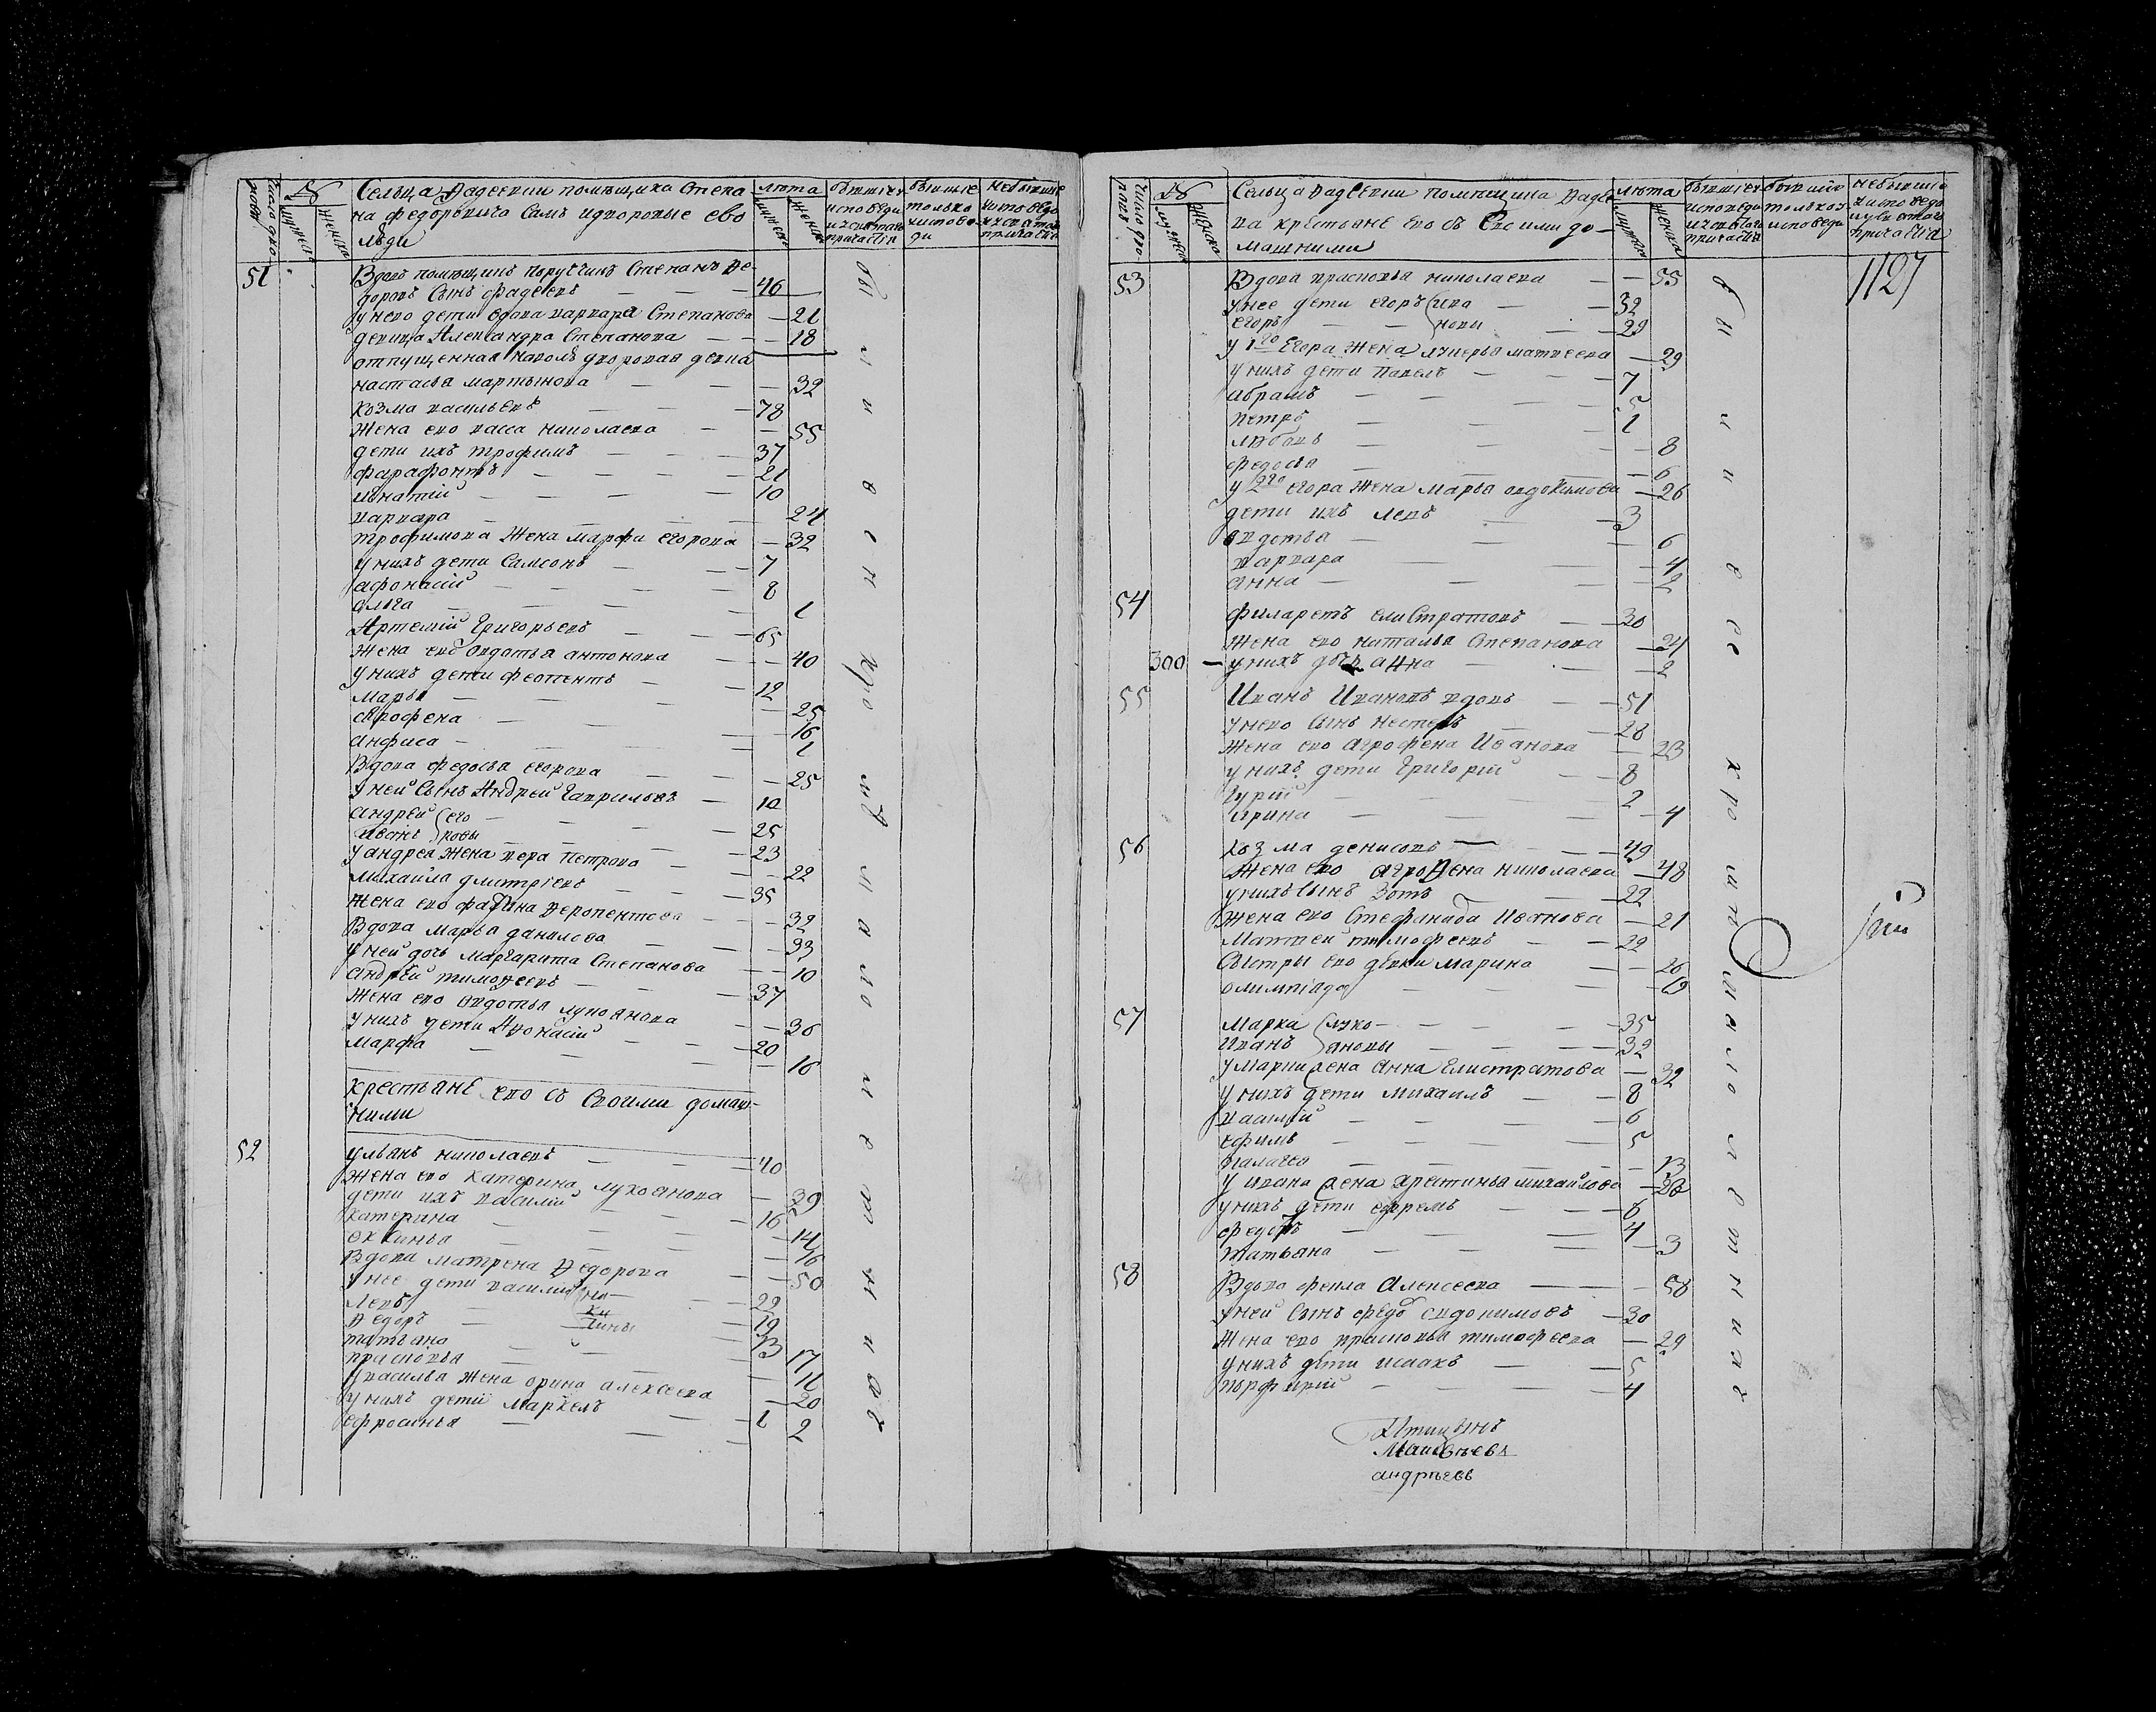 Сельца Фадеевки помѣщика Степа
на Федоровича Самъ идворовые ево
люди
число дво
ровъ
№
мужеска
женска
лѣта
мужеск
женск
бывшiеу
исповеди
исвятаго
причастiя
бывшiе
только
уиспове
ди
небывшiе
уисповеди
исвятаго
причастiя
51
Вдовъ помѣщикъ порутчикъ Степанъ Фе-
доровъ Сынъ Фадеевъ — 46
унего дети вдова варвара Степанова — 21
девица Александра Степановна — 18
отпущенная наволю дворовая девка
настасья мартынова — 32
козма васильевъ — 78
жена ево васса николаева — 55
дети ихъ трофимъ — 37
фарафонтъ — 21
игнатiй — 10
варвара — 24
трофимова жена марфа егорова — 32
унихъ дети Самсонъ — 7
афонасiй — 8
ольга — 1
Артемiй Григорьевъ — 65
жена ево овдотья антонова — 40
унихъ дети феопентъ — 12
марья — 25
огрофена — 16
анфиса — 1
Вдова федосья егорова — 25
уней Сынъ Андрей Гаврильевъ — 10
андрей его — 25
иванъ ровы — 23
уандрея жена вера петрова — 22
михайла дмитрiевъ — 35
жена ево фатина
Вдова марья данилова — 32
уней дочь маргарита Степанова — 33
андрей тимофеевъ — 10
жена ево овдотья лукоянова — 37
унихъ дети Афонасiй — 36
марфа — 20
16
крестьянЕ ево съ Своими домаш-
ними
52
ульянъ николаевъ — 40
жена ево катерина лукоянова — 39
дети ихъ василiй — 16
катерина — 14
оксинья — 16
Вдова матрена Федорова — 50
унее дети василiй ни- — 22
левъ — 19
Федоръ — китины — 13
татьяна — 17
прасковья — 11
увасилья жена орина алексеева — 20
унихъ дети маркелъ — 1
ефросинья — 2
Сельца Фадеевки помѣщика Фадее
ва крестьянЕ ево съ Своими до-
машними
число дво
ровъ
№
мужеска
женска
лѣта
мужеска
женска
бывшiеу
исповеди
исвятаго
причастiя
бывшiе
толькоу
исповеди
небывшiе
уисповеди
исвятаго
причастiя
1127
53
Вдова прасковья николаева — 55
унее дети егоръ ива — 32
егоръ — новы — 29
у1го Егора жена лукерья матвеева — 29
унихъ дети павелъ — 7
абрамъ — 5
петръ — 1
любовь — 8
федосья — 6
у2го егора жена марья овдокимова — 26
дети ихъ левъ — 3
овдотья — 6
варвара — 4
анна — 2
54
филаретъ елистратовъ — 30
жена ево наталья Степанова — 24
300 — унихъ дочь анна — 2
55
Иванъ Ивановъ вдовъ — 51
унево сынъ нестеръ — 28
жена ево агрофена Иванова — 23
унихъ дети Григорiй — 8
гурiй — 2
ирина — 4
56
козма денисовъ — 49
жена ево агроФена николаева — 48
унихъ Сынъ Зотъ — 22
жена ево Стефанида Иванова — 21
Матвей тимофеевъ — 29
Сестры ево девки марина — 26
олимпiада — 19
57
Марка луко- — 35
Иванъ яновы — 32
умарки жена анна Елистратова — 32
унихъ дети михаилъ — 8
василiй — 6
ефимъ — 5
палагея — 13
уивана жена христинья михайлова — 28
унихъ дети ефремъ — 6
федоръ — 4
татьяна — 3
58
Вдова фекла Алексеева — 58
уней Сынъ федоръ овдокимовъ — 30
жена ево прасковья тимофеева — 29
унихъ дети исаакъ — 5
порфирiй — 4
Матвѣевъ
андрѣевъ